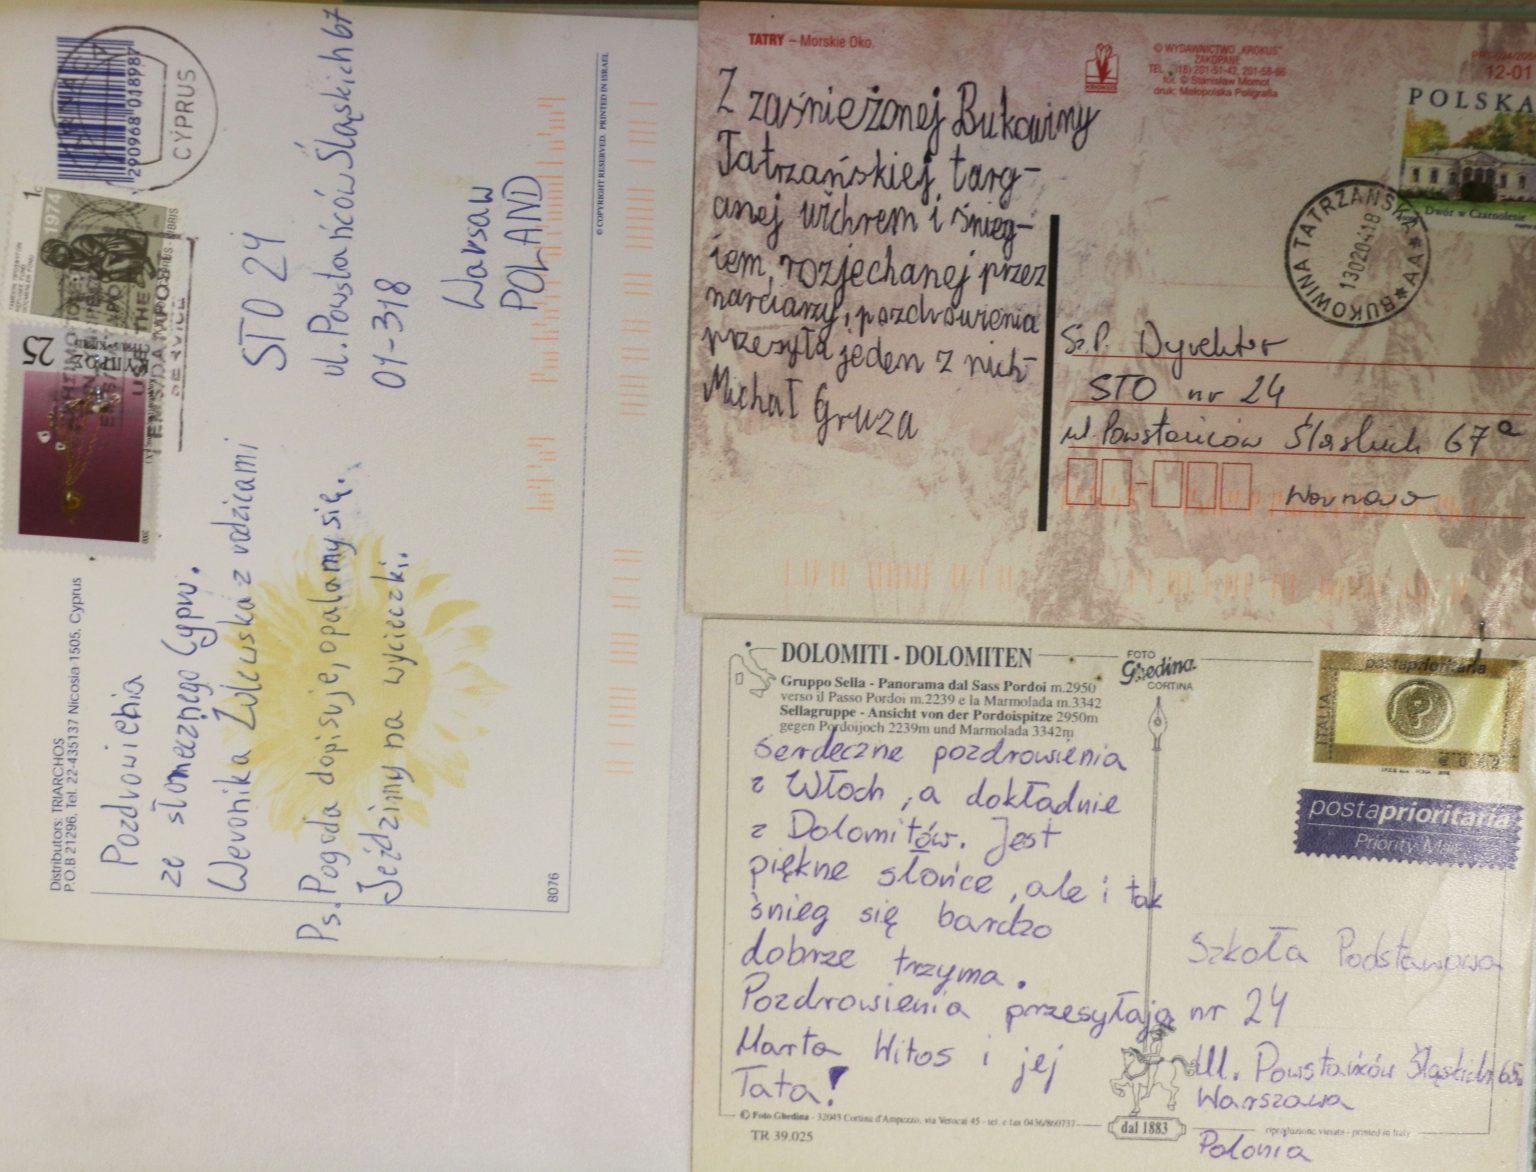 Distributors: TRIARCHOS
P.O.B 21296, Tel. 22-435137 Nicosia 1505, Cyprus
Pozdrowienia
ze słonecznego Cypru.
Weronika Zulewska z rodzicami
Ps. Pogoda dopisuje, opalamy się.
Jeździmy na wycieczki.
8076
© COPYRIGHT RESERVED. PRINTED IN ISRAEL
2 290968 018987
CYPRUS
1c
1974
25
USE THE
EMS/DATAPOST
SERVICE
STO 24
ul. Powstańców Śląskich 67
01-318
Warsaw
POLAND
TATRY – Morskie Oko.
© WYDAWNICTWO „KROKUS"
ZAKOPANE
TEL. (18) 201-51-42, 201-58-66
fot. © Stanisław Momot
druk: Małopolska Poligrafia
KROKUS
12-01
POLSKA
Dwór w Czarnolesie
BUKOWINA TATRZAŃSKA
*AA*
Z zaśnieżonej Bukowiny
Tatrzańskiej, targ-
anej wichrem i śnieg-
iem, rozjechanej przez
narciarzy, pozdrowienia
przesyła jeden z nich-
Michał Gruza
Sz.P. Dyrektor
STO nr 24
ul. Powstańców Śląskich 67a
Warszawa
DOLOMITI - DOLOMITEN
Gruppo Sella - Panorama dal Sass Pordoi m.2950
verso il Passo Pordoi m.2239 e la Marmolada m.3342
Sellagruppe - Ansicht von der Pordoispitze 2950m
gegen Pordoijoch 2239m und Marmolada 3342m
FOTO
Ghedina
CORTINA
postaprioritaria
ITALIA
€ 0,62
postaprioritaria
Priority Mail
Serdeczne pozdrowienia
z Włoch, a dokładnie
z Dolomitów. Jest
piękne słońce, ale i tak
śnieg się bardzo
dobrze trzyma.
Pozdrowienia przesyłają
Marta Witos i jej
Tata!
Szkoła Podstawowa
nr 24
Ul. Powstańców Śląskich
Warszawa
Polonia
© Foto Ghedina - 32043 Cortina d'Ampezzo, via Verocai 45 - tel. e fax 0436/860737
dal 1883
riproduzione vietata - printed in Italy
TR 39.025